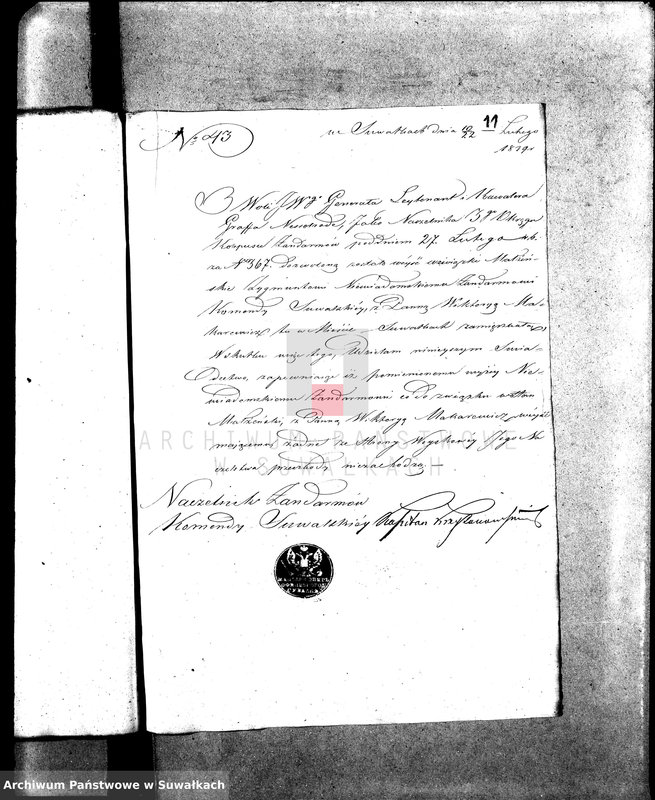 11
№ 43
w Suwałkach dnia 10/22 Lutego
Z Woli JW. Generała Leytenanta Kawalera
Graffa Nesselrode, Jako Naczelnika 3go Okręgu
Korpusu Żandarmów pod dniem 27. Lutego
za № 367. dozwolone zostało wejść w związki Małżeń-
skie Zygmuntowi Niewiadomskiemu Żandarmowi
Komendy Suwalskiéy, z Panną Wiktoryą Ma-
karewicz tu w Mieście Suwałkach zamieszkałą,
W skutku więc tego, Udzielam niniejszym Świa-
dectwo, zapewniające iż pomienionemu wyżéy Nie-
wiadomskiemu Żandarmowi co do związku
Małżeński, z Panną Wiktoryą Makarewicz, wejść
mającemu żadne ze Strony Woyskowéy Jego Na-
czelstwa przeszkody niezachodzą.—
Naczelnik Żandarmów
Komendy Suwalskiéy Kapitan
ARCHIWUM PAŃSTWOWE
W SUWAŁKACH
Archiwum Państwowe w Suwałkach